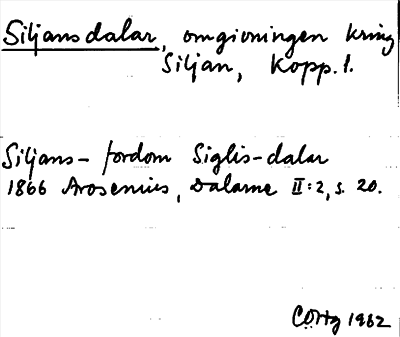 Siljansdalar, omgivningen kring
Siljan, Kopp. l.
Siljans- fordom Siglis-dalar
1866 Arosenius, Dalarne II:2, s. 20.
1962